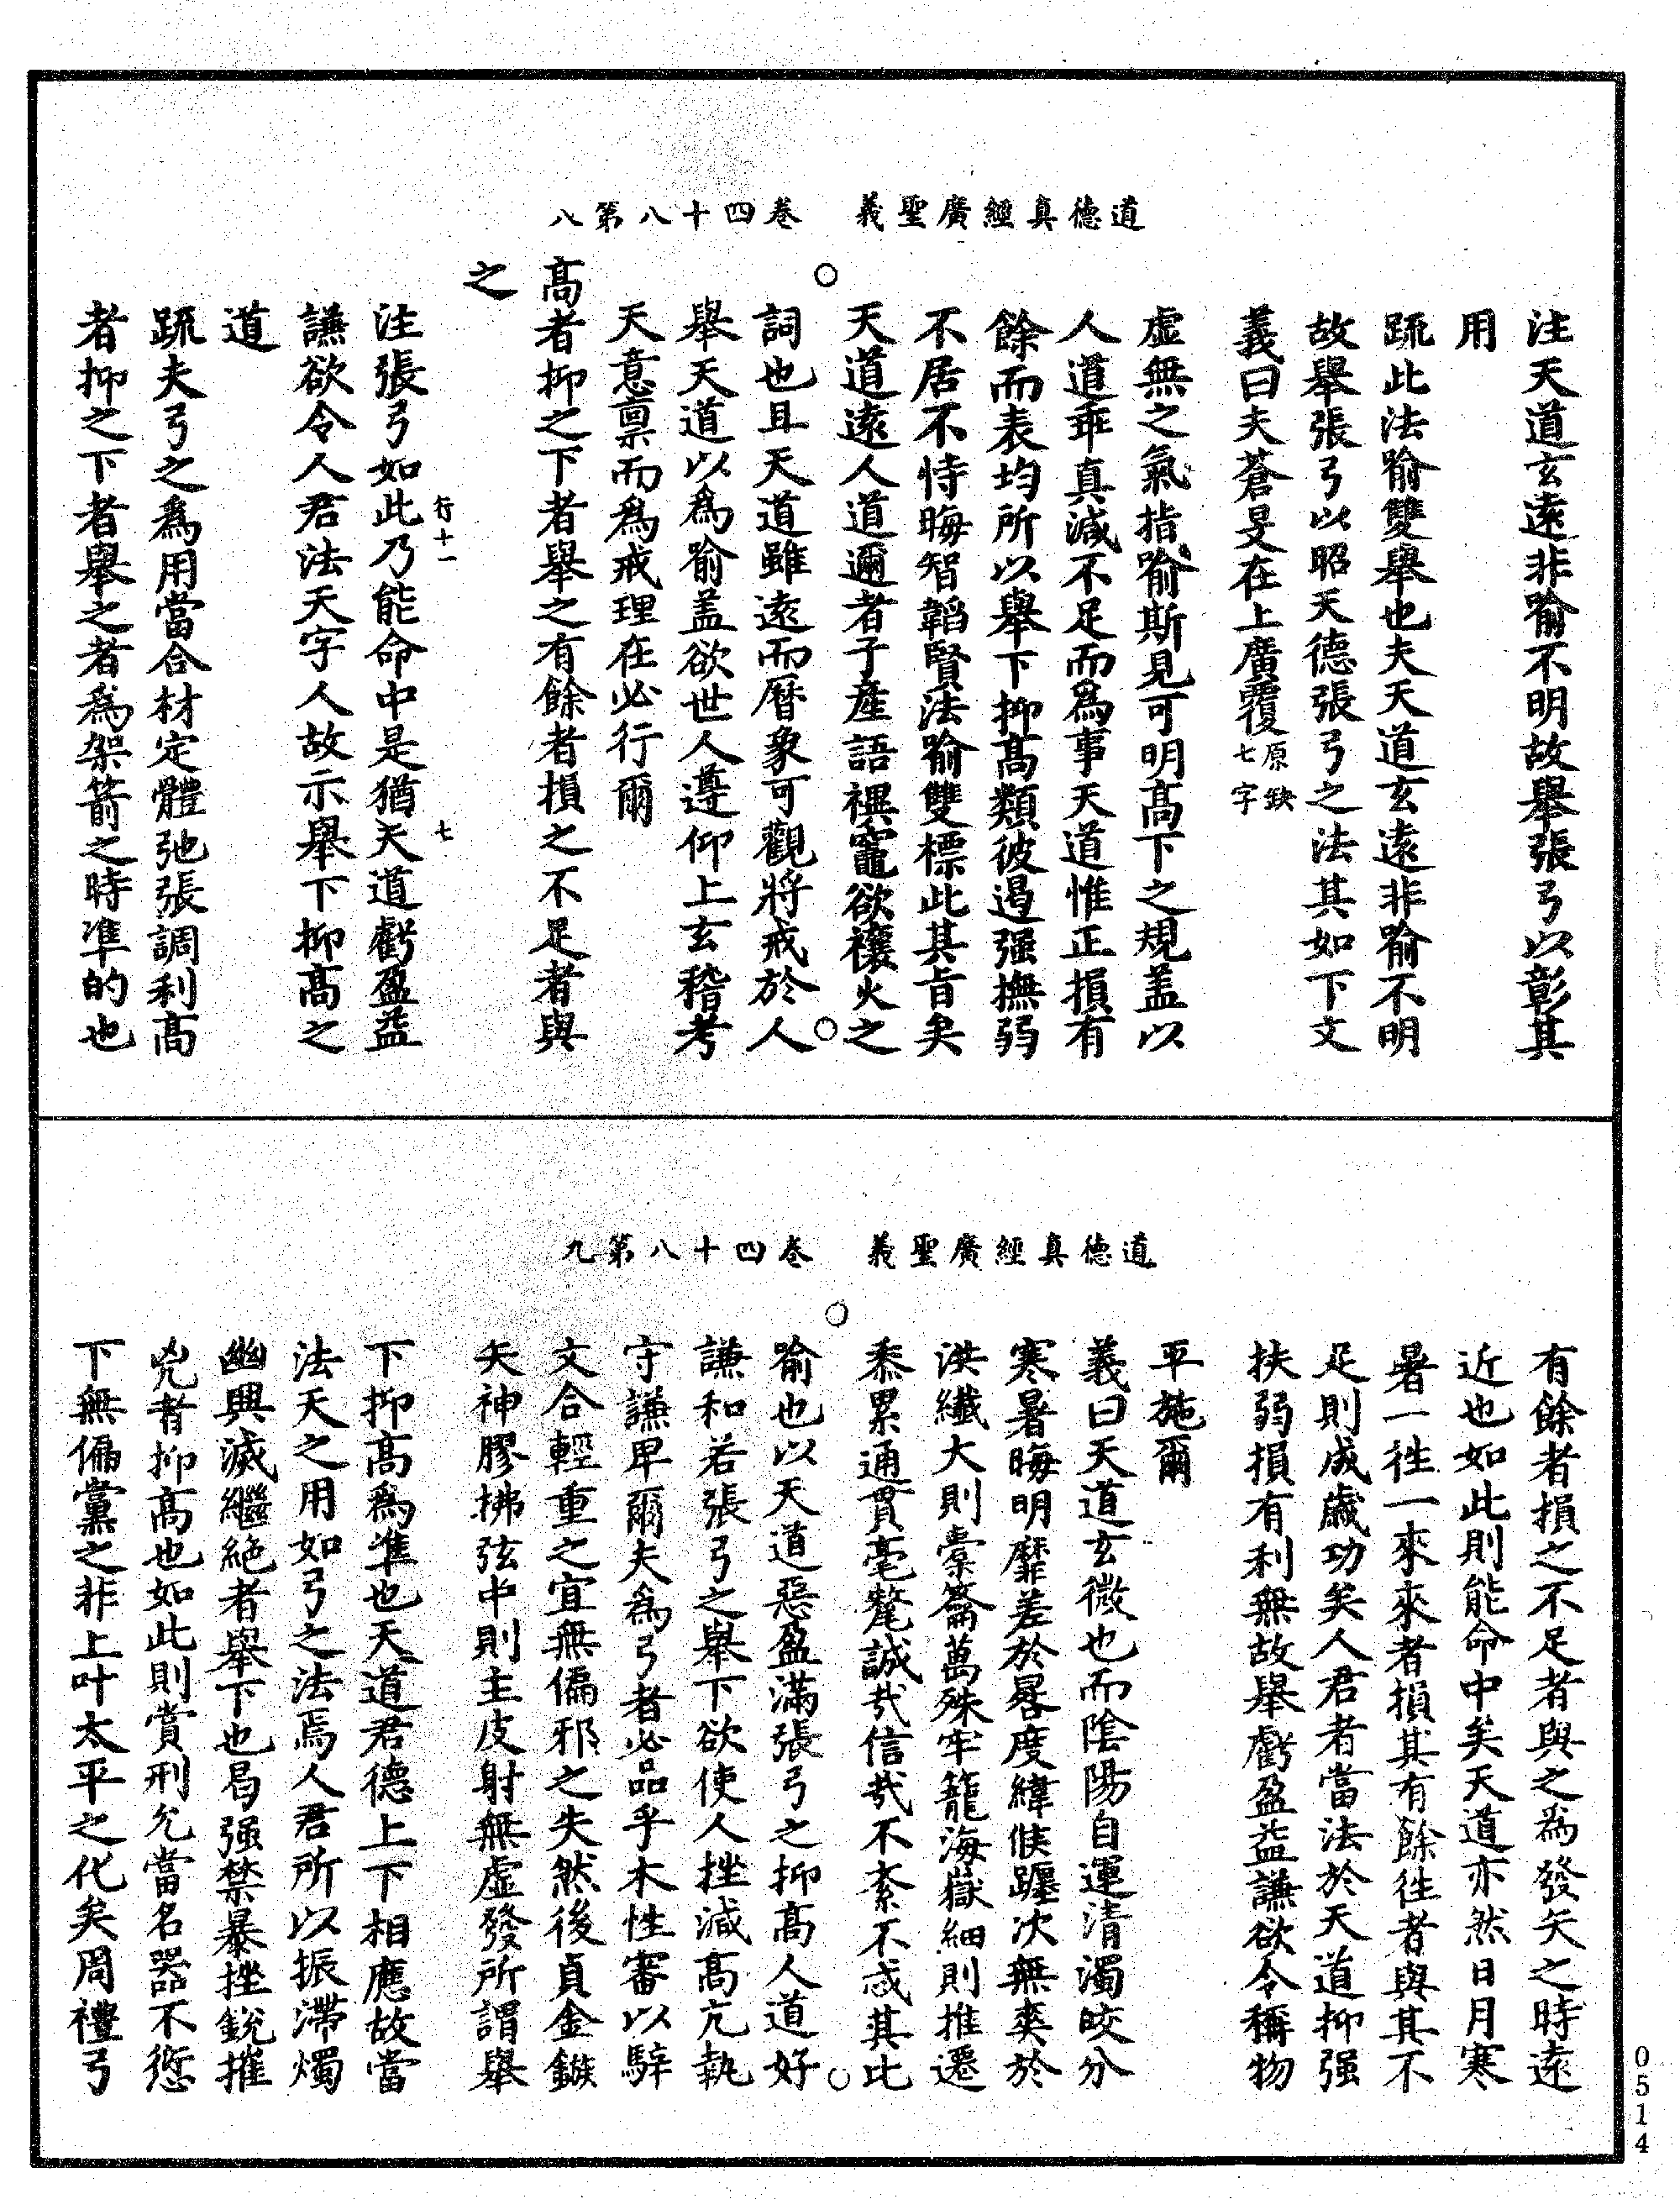 道德真經廣聖義　卷四十八第八
注天道玄遠非喻不明故舉張弓以彰其
用
疏此法喻雙舉也夫天道玄遠非喻不明
故舉張弓以昭天德張弓之法其如下文
義曰夫蒼旻在上廣覆原缺七字
虛無之氣指喻斯見可明高下之規盖以
人道乖真減不足而為事天道惟正損有
餘而表均所以舉下抑高類彼遏强撫弱
不居不恃晦智韜賢法喻雙標此其旨矣
天道遠人道邇者子產語禩竈欲禳火之
詞也且天道雖遠而曆象可觀將戒於人
舉天道以為喻盖欲世人遵仰上玄稽考
天意禀而為戒理在必行爾
高者抑之下者舉之有餘者損之不足者與
之
行十一　七
注張弓如此乃能命中是猶天道虧盈益
謙欲令人君法天字人故示舉下抑高之
道
疏夫弓之為用當合材定體弛張調利高
者抑之下者舉之者為架箭之時準的也
道德真經廣聖義　卷四十八第九
有餘者損之不足者與之為發矢之時遠
近也如此則能命中矣天道亦然日月寒
暑一往一來來者損其有餘往者與其不
足則成歲功矣人君者當法於天道抑强
扶弱損有利無故舉虧盈益謙欲令稱物
平施爾
義曰天道玄微也而陰陽自運清濁皎分
寒暑晦明靡差於晷度緯候躔次無爽於
洪纖大則橐籥萬殊牢籠海嶽細則推遷
黍累通貫毫氂誠哉信哉不紊不忒其比
喻也以天道惡盈滿張弓之抑高人道好
謙和若張弓之舉下欲使人挫減高亢執
守謙卑爾夫為弓者必品乎木性審以騂
文合輕重之宜無偏邪之失然後貞金鏃
矢神膠拂弦中則主皮射無虛發所謂舉
下抑高為準也天道君德上下相應故當
法天之用如弓之法焉人君所以振滯燭
幽興滅繼絕者舉下也曷强禁暴挫銳摧
兇者抑高也如此則賞刑允當名器不愆
下無偏黨之非上叶太平之化矣周禮弓
0514